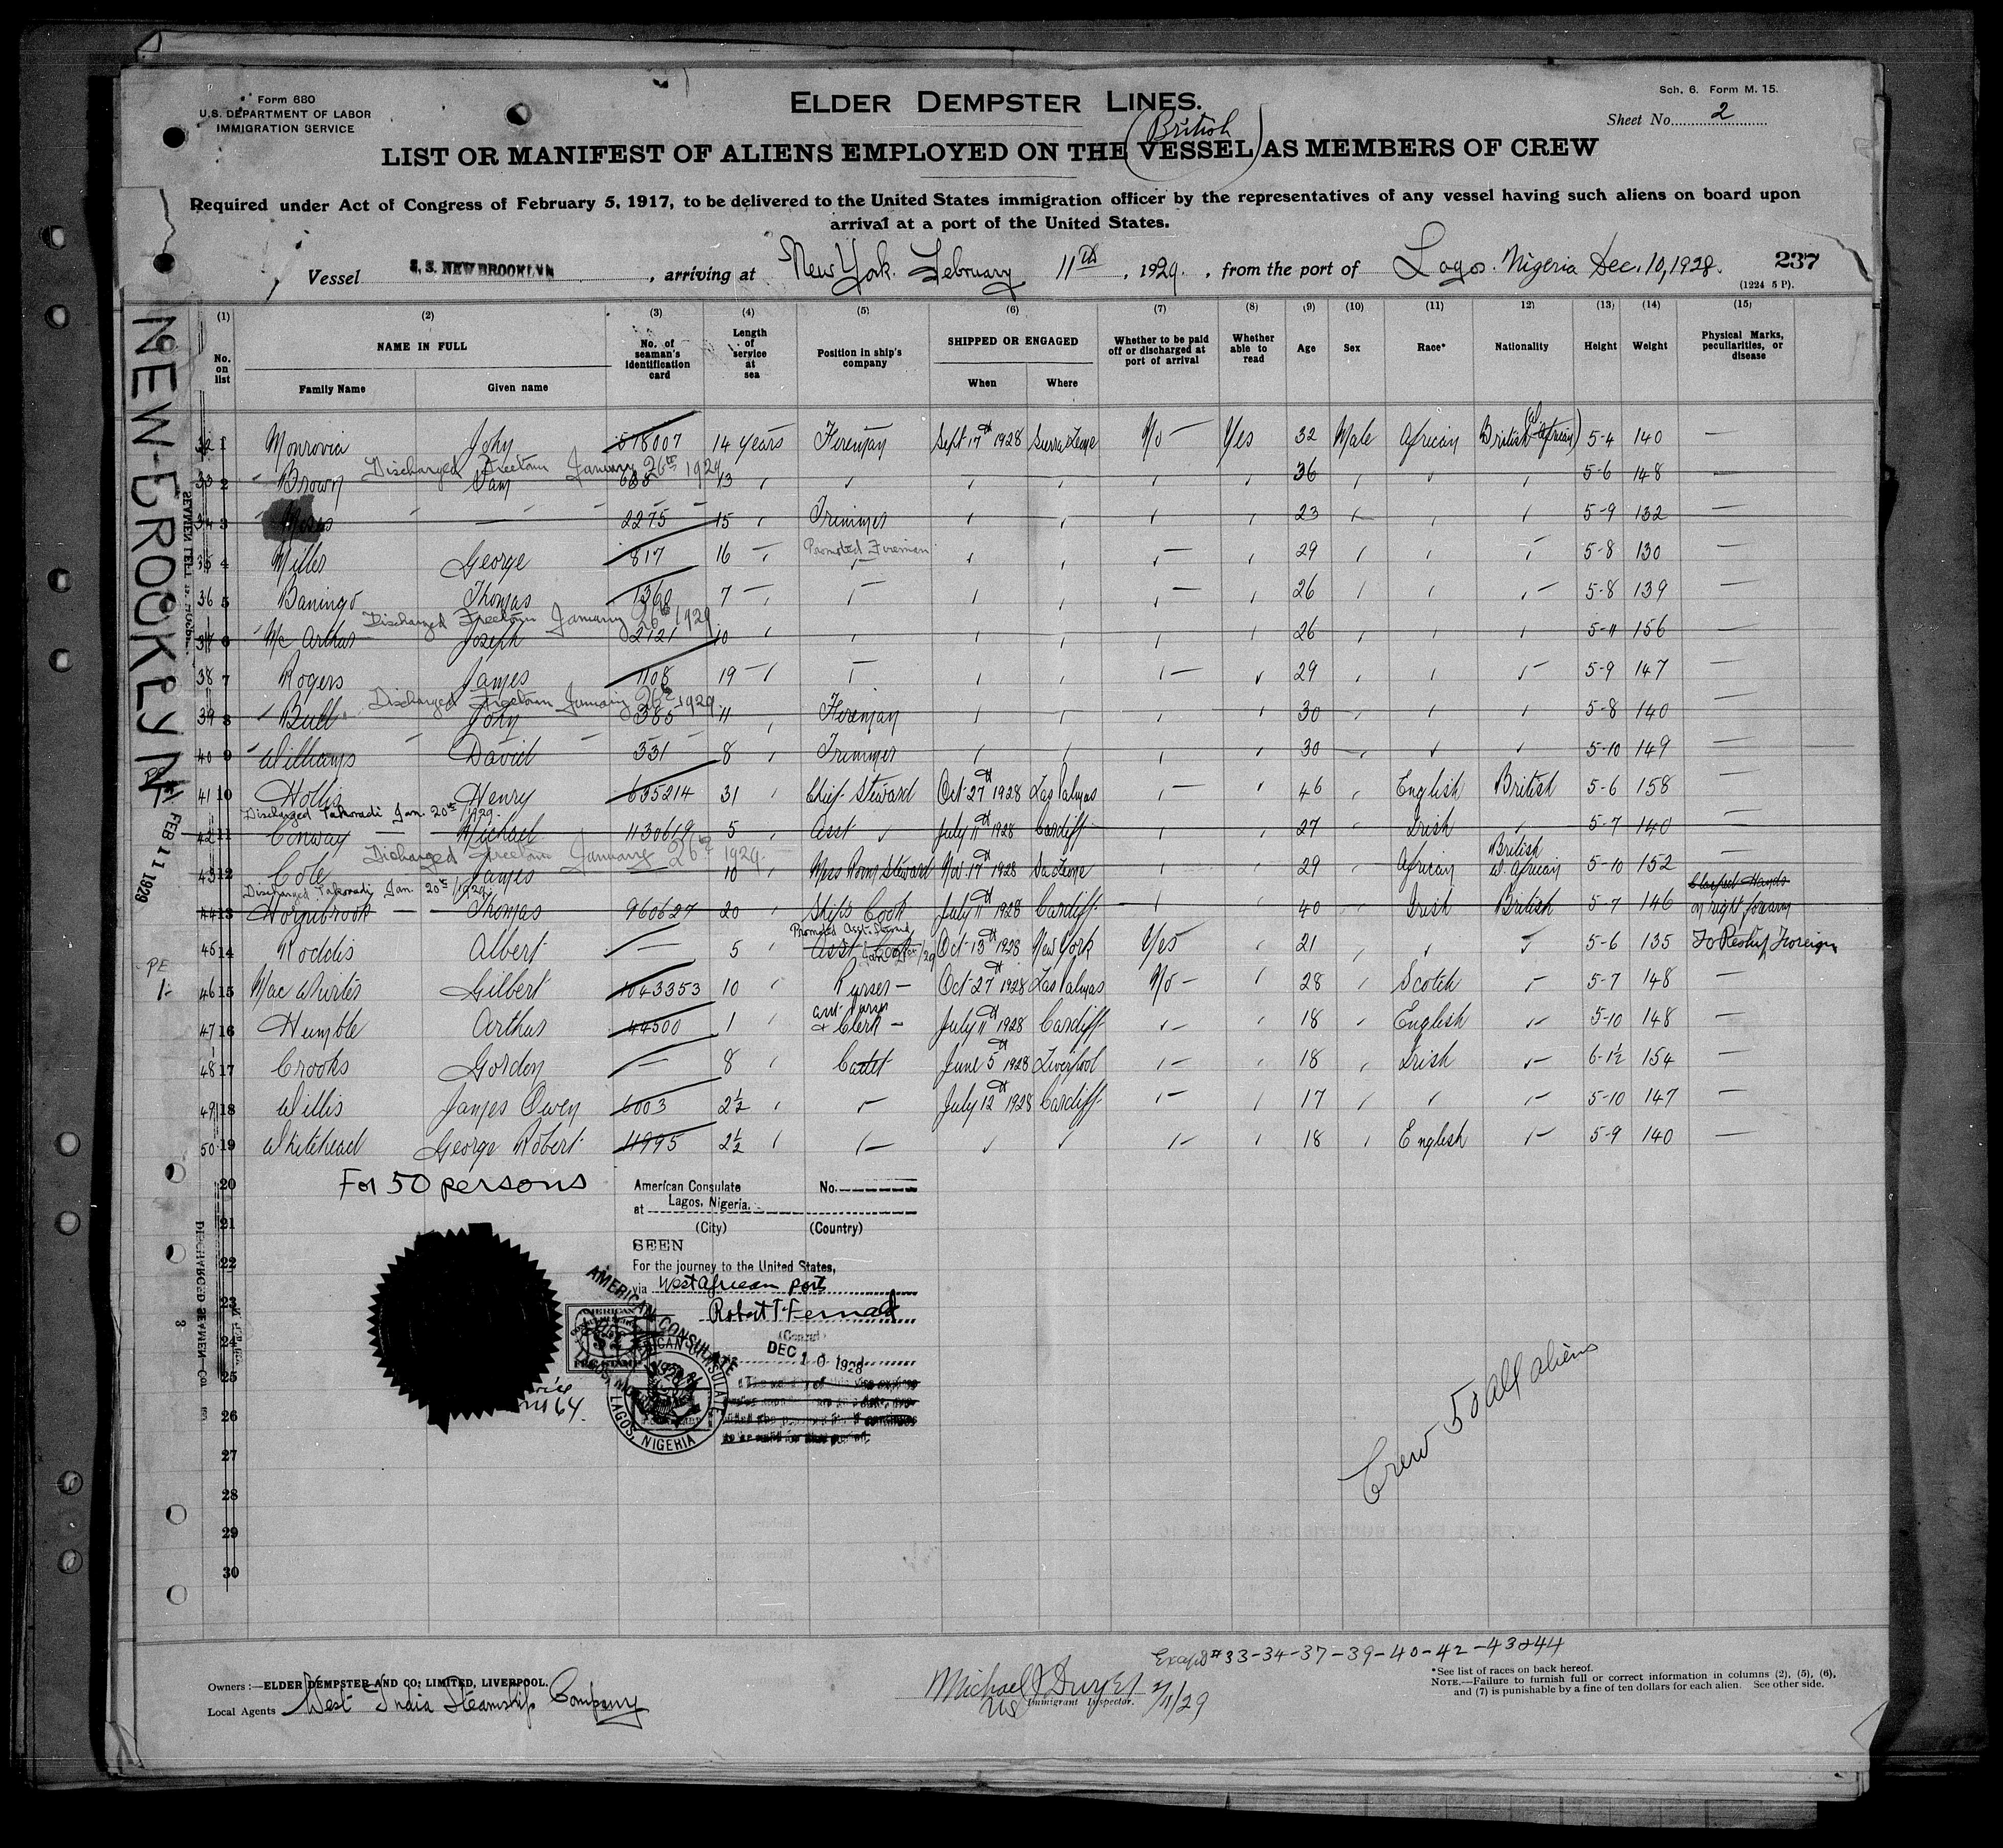 Form 680
U.S. DEPARTMENT OF LABOR
IMMIGRATION SERVICE
ELDER DEMPSTER LINES.
Sch. 6. Form M. 15.
Sheet No. 2
(British)
LIST OR MANIFEST OF ALIENS EMPLOYED ON THE VESSEL AS MEMBERS OF CREW
Required under Act of Congress of February 5, 1917, to be delivered to the United States immigration officer by the representatives of any vessel having such aliens on board upon
arrival at a port of the United States.
Vessel S. S. NEW BROOKLYN, arriving at New York. February 11th, 1929., from the port of Lagos. Nigeria Dec. 10, 1928. 237
(1224 5 P).
(1) (2) (3) (4) (5) (6) (7) (8) (9) (10) (11) 12) (13) (14) (15)
No. on list NAME IN FULL Family Name Given name No. of seaman's identification card Length of service at sea Position in ship's company SHIPPED OR ENGAGED When Where Whether to be paid off or discharged at port of arrival Whether able to read Age Sex Race* Nationality Height Weight Physical Marks, peculiarities, or disease
32 1 Monrovia John 578007 14 years Fireman Sept 17th 1928 Sierra Leone No — Yes 32 Male African British (W. African) 5-4 140 —
Discharged Freetown January 26th 1929
33 2 Brown Sam 13 36 5-6 148 —
34 3 Moses — 2275 15 Trimmer 23 5-9 132 —
35 4 Miller George 817 16 Promoted Fireman 29 5-8 130 —
36 5 Baningo Thomas 1360 7 26 5-8 139 —
Discharged Freetown January 26th 1929
37 6 Mc Arthur Joseph 2121 10 26 5-11 156 —
38 7 Rogers James 1108 19 29 5-9 147 —
Discharged Freetown January 26th 1929
39 8 Bull John 385 11 Fireman 30 5-8 140 —
40 9 Williams David 331 8 Trimmer 30 5-10 149 —
41 10 Hollis Henry 635214 31 Chief Steward Oct 27th 1928 Las Palmas 46 English British 5-6 158 —
Discharged Takoradi Jan. 20th/1929.
42 11 Conway Michael 1130619 5 Asst July 11th 1928 Cardiff 27 Irish 5-7 140 —
Discharged Freetown January 26th 1929.
43 12 Cole James — 10 Mess Room Steward Nov 17th 1928 Sa Leone 29 African British W. African 5-10 152 —
Discharged Takoradi Jan. 20th/1929.
44 13 Hornibrook Thomas 960627 20 Ships Cook July 11th 1928 Cardiff 40 Irish British 5-7 146 Clasped Hands on right forearm
45 14 Roddis Albert — 5 Promoted Asst. Steward Asst Cook Oct 13th 1928 New York Yes 21 5-6 135 To Reship Foreign
46 15 Mac Whirter Gilbert 1043353 10 Purser — Oct 27th 1928 Las Palmas No — 28 Scotch 5-7 148 —
47 16 Humble Arthur 44500 1 Asst Purser & Clerk — July 11th 1928 Cardiff 18 English 5-10 148 —
48 17 Crooks Gordon — 8 Cadet June 5th 1928 Liverpool 18 Irish 6-1½ 154 —
49 18 Willis James Owen 6003 2½ July 12th 1928 Cardiff 17 5-10 147 —
50 19 Whitehead George Robert 11995 2½ 18 English 5-9 140 —
20
21
22
23
24
25
26
27
28
29
30
For 50 persons
American Consulate No.
at Lagos, Nigeria.
(City) (Country)
SEEN
For the journey to the United States,
via West African port
Robert T. Fernald
(Consul)
DEC 10 1928
AMERICAN CONSULATE
LAGOS, NIGERIA
Crew 50 all aliens
NEW-BROOKLYN
FEB 11 1929
PE
1-
Exam'd #33-34-37-39-40-42-43&44
Owners :—ELDER DEMPSTER AND CO; LIMITED, LIVERPOOL.
Local Agents West India Steamship Company
Michael J Dwyer 2/11/29
Immigrant Inspector.
*See list of races on back hereof.
NOTE.—Failure to furnish full or correct information in columns (2), (5), (6),
and (7) is punishable by a fine of ten dollars for each alien. See other side.